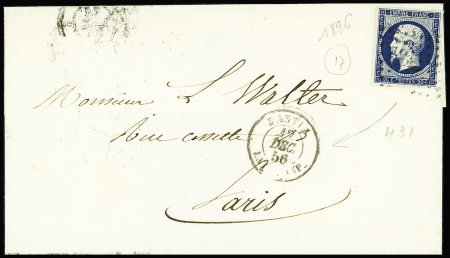 1896
17
EMPIRE FRANC
POSTES
Monsieur L Walter
Rue
BASTIA
12
DEC
56
431
Paris